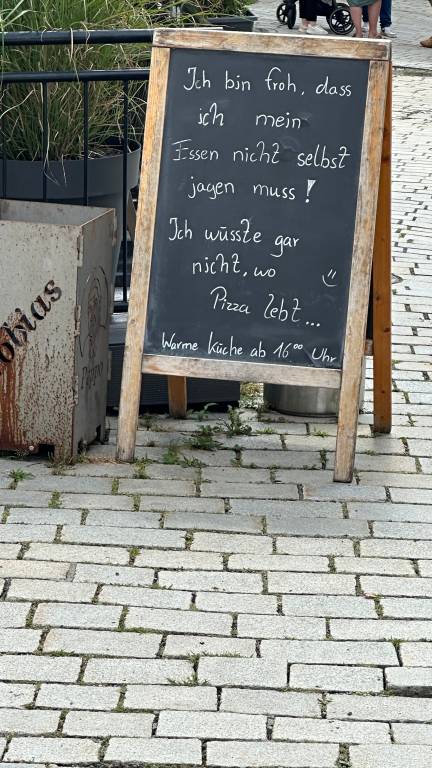 Ich bin froh, dass
ich mein
Essen nicht selbst
jagen muss!
Ich wüsste gar
nicht, wo
Pizza lebt...
Warme Küche ab 16⁰⁰ Uhr